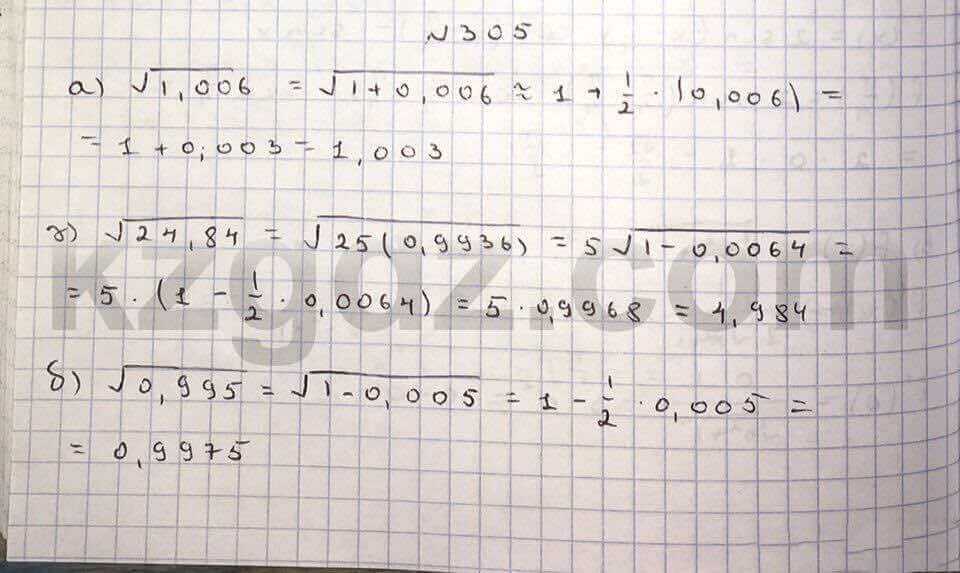 №305
а) √1,006 = √1+0,006 ≈ 1 + 1/2 · (0,006) =
= 1 + 0,003 = 1,003
г) √24,84 = √25(0,9936) = 5√1-0,0064 =
= 5 · (1 - 1/2 · 0,0064) = 5 · 0,9968 = 4,984
б) √0,995 = √1-0,005 = 1 - 1/2 · 0,005 =
= 0,9975
kzgdz.com